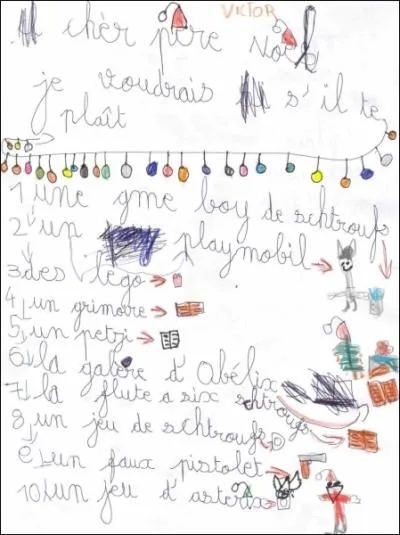 VICTOR
chèr père Noël
je voudrais s'il te
plaît
1 une gme boy de schtroufs
2 un playmobil
3 des légo
4 un grimoire
5 un petji
6 la galère d'Obélix
7 la flute a six schtroufs
8 un jeu de schtroufs
un faux pistolet
10 un jeu d'asterix